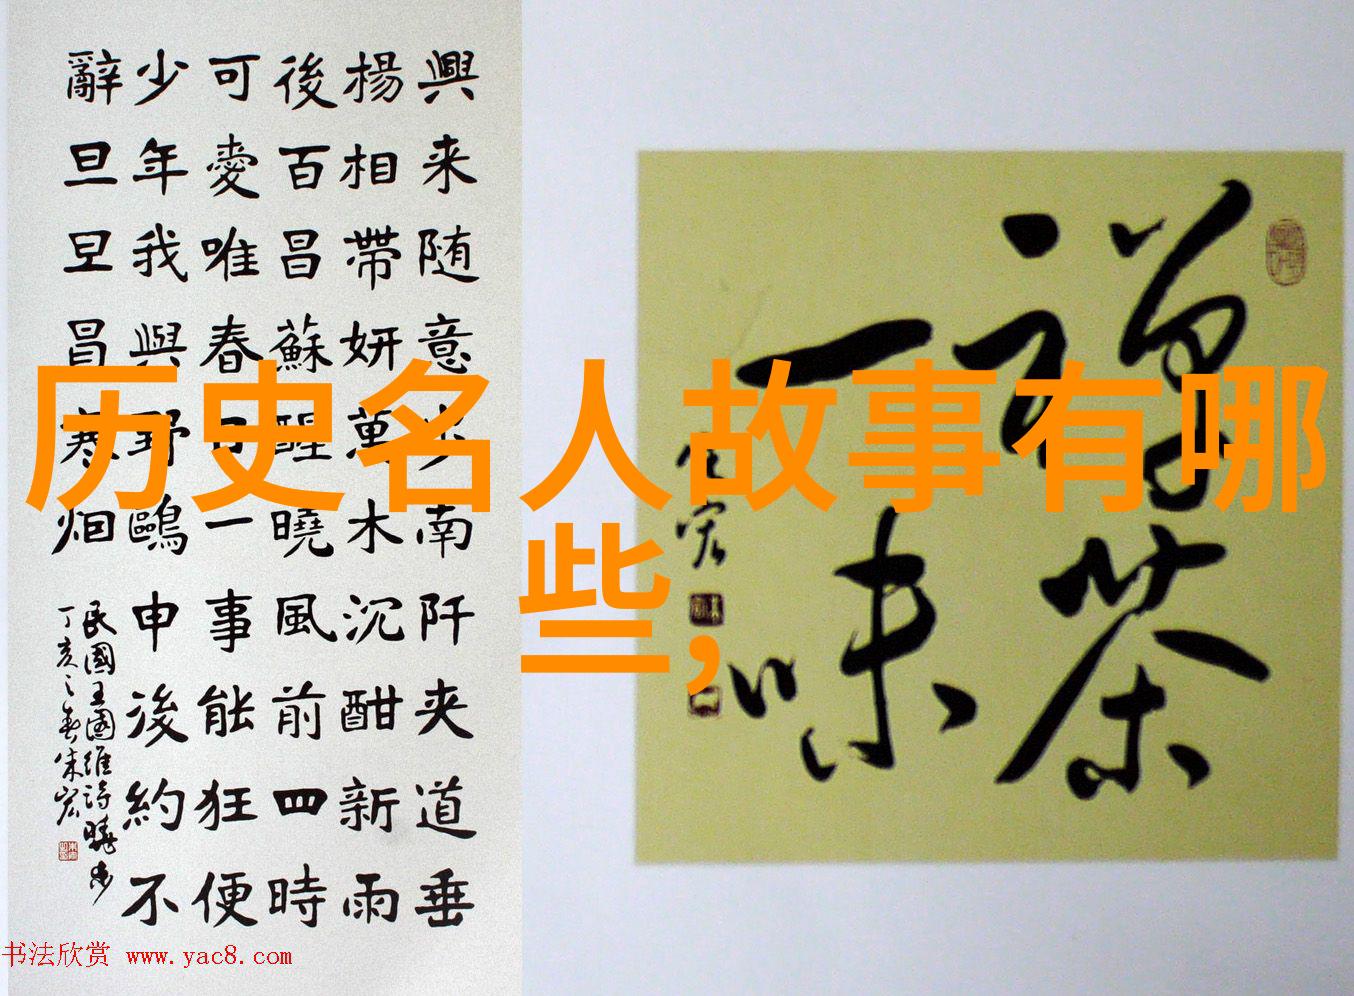 興来随意步南阡夹道垂
楊相帶妍萬木沉酣新雨
後百昌蘇醒曉風前四時
可愛唯春日一事能狂便
少年我與野鷗申後約不
辭旦旦冒寒烟
民國王國維詩曉步
丁亥之春朱宏
禅茶
一味
朱宏
历史名人故事有哪
些,
书法欣赏 www.yac8.com